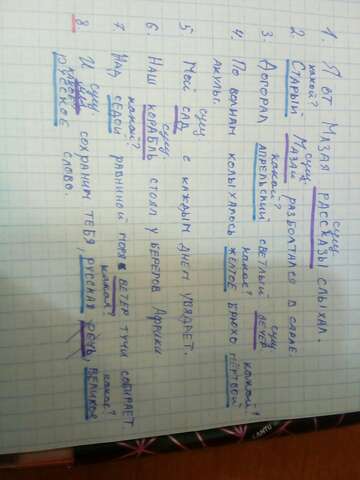 сущ
1. Я от Мазая рассказы слыхал.
какой? сущ.
2. Старый Мазай разболтался в сарае.
какой? сущ
3. Догорал апрельский светлый вечер
какое? какой?
4. По волнам колыхалось желтое брюхо мёртвой
акулы.
сущ
5. Мой сад с каждым днем увядает.
сущ.
6. Наш корабль стоял у берегов Африки
какой?
7. Над седой равниной моря ветер тучи собирает
сущ. какая? какое?
8. И мы сохраним тебя, русская речь, великое
русское слово.